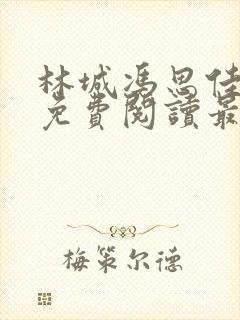 林城馮思佳
免費閱讀最
梅策尔德